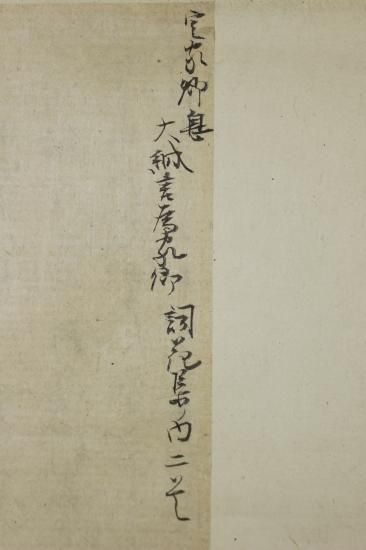 定家卿息
大納言為家卿 詞花集ノ内二首